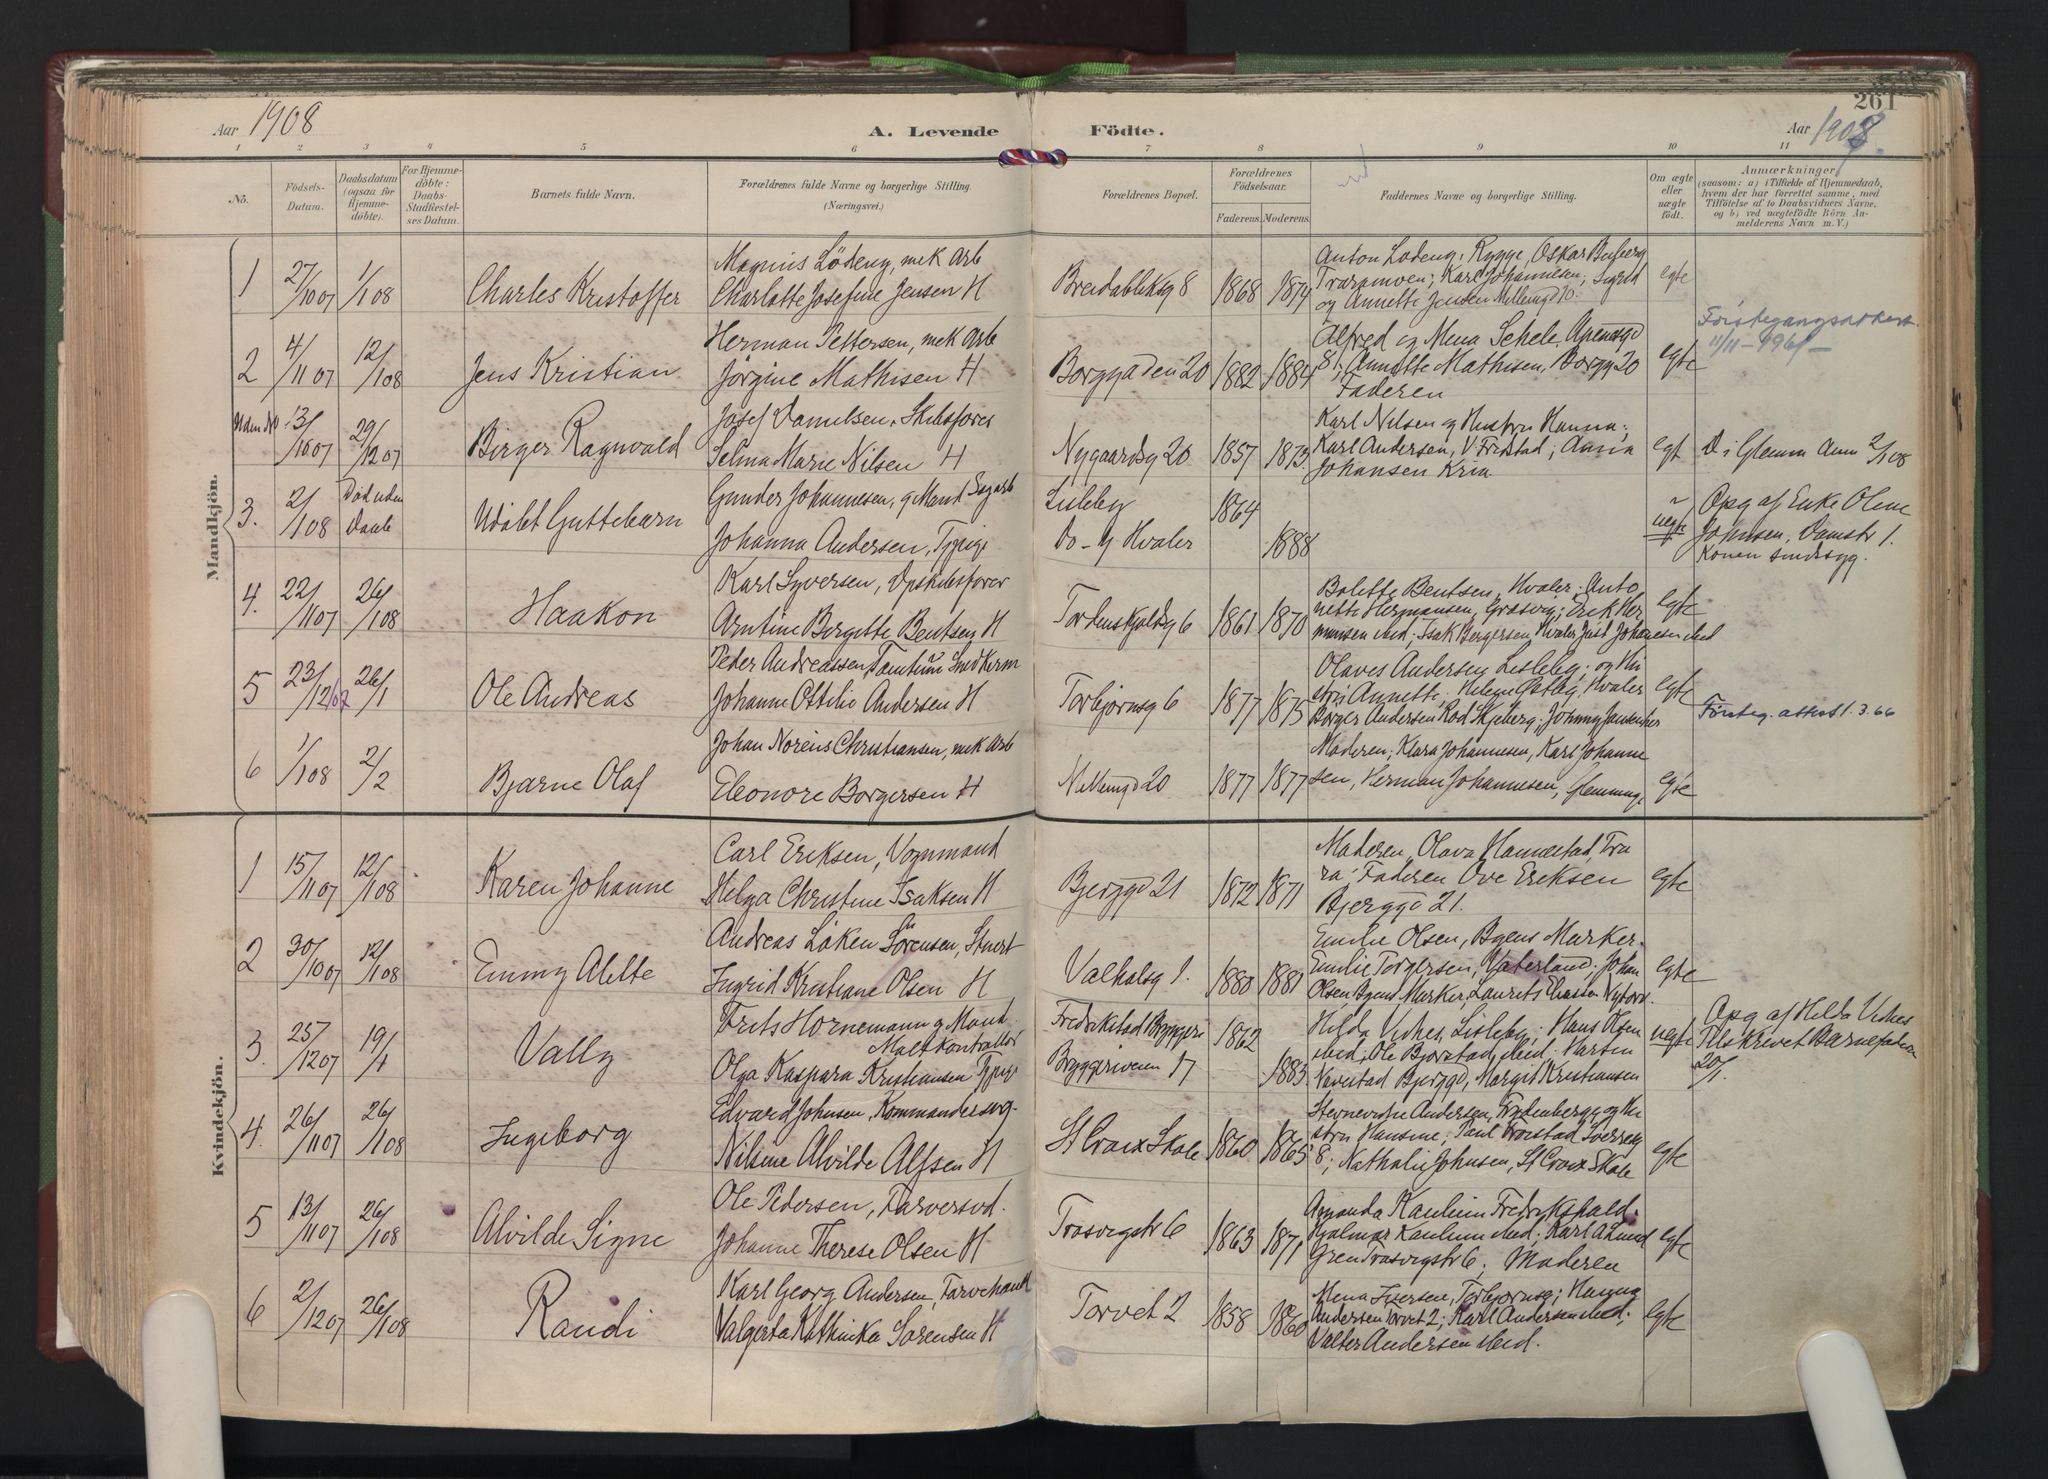 261
Aar 1908
A. Levende Födte.
Aar 1908
1 2 3 4 5 6 7 8 9 10 11
Nö.
Födsels-Datum.
Daabsdatum (ogsaa for Hjemmedöbte).
For Hjemmedöbte: Daabs-Stadfæstelses Datum.
Barnets fulde Navn.
Forældrenes fulde Navne og borgerlige Stilling. (Næringsvei.)
Forældrenes Bopæl.
Forældrenes Födselsaar.
Faderens. Moderens.
Faddernes Navne og borgerlige Stilling.
Om ægte eller uægte födt.
Anmærkninger
(sansom: a) i Tilfælde af Hjemmedaab,
hvem der har forrettet samme, med
Tilföielse af to Daabsvidners Navne,
og b) ved uægtefödte Börn Anmelderens Navn m. V.)
Mandkjön.
1 27/10 07 1/1 08 Charles Kristoffer
Magnus Lödeng, mek Arb
Charlotte Josefine Jensen H
Breidablikkg 8 1868 1874
Anton Lodeng, Rygge, Oskar
Karl Johannesen; Sigrid
og Annette Jensen
egte
2 4/11 07 12/1 08 Jens Kristian
Herman Pettersen, mek Arb
Jørgine Mathisen H
Borggaden 20 1882 1884
Alfred og Mena
8; Annette Mathisen, Borgg 20
Faderen
egte
11/11 - 1961 -
Uden No 13/10 07 29/12 07 Birger Ragnvald
Josef Danielsen, Skibsfører
Selma Marie Nilsen H
Nygaardsg 20 1857 1873
Karl Nilsen og Hustru Hanna;
Karl Andersen, V Fredstad; Anna
Johansen Kria
egt
D i Glemm Ann 2/1 08
3. 2/1 08 Död uden Daab Udøbt Guttebarn
Gunder Johannesen, g Mand Sagarb
Johanna Andersen, Tjpige
Lisleby 1864
Do - g Hvaler 1888
uegte
Opg af Enke Olene
Johnsen, Damstr 1.
Konen sindssyg.
4. 22/11 07 26/1 08 Haakon
Karl Syversen, Dpskibsfører
Arntine Birgitte Bentsen H
Tordenskjoldsg 6 1861 1870
Bolette Bentsen, Hvaler; Anto
nette Hermansen, Græsvig; Erik Her
mansen ibid; Isak Bergersen Hvaler Just Johansen ibid
egte
5 23/12 07 26/1 Ole Andreas
Peder Andreassen Smed Kirm
Johanne Ottilie Andersen H
Torbjørnsg 6 1877 1875
Olaves Andersen Lisleby; og Hu
stru Annette; Helene Østby, Hvaler
Borger Andersen Rød Skjeberg; Johnny Jansen her
egte
Førsteg. attest 1.3.66
6 1/1 08 2/2 Bjarne Olaf
Johan Norens Christiansen, mek Arb
Eleonore Borgersen H
1877 1877
Moderen; Klara Johannesen, Karl Johanne
sen, Herman Johannesen, Glemmeng,
egte
Kvindekjön.
1 15/11 07 12/1 08 Karen Johanne
Carl Eriksen, Vognmand
Helga Christine Isaksen H
Bjerggd 21 1872 1871
Moderen, Olava Hannestad, Tra
ra; Faderen Ove Eriksen
Bjerggd 21.
egte
2 30/10 07 12/1 08 Emmy Alette
Andreas Løken Sörensen, Stuert
Ingrid Kristiane Olsen H
Valhalsg 1. 1880 1881
Emilie Olsen, Byens Marker.
Emilie Torgersen, Vaterland; Johan
Olsen, Byens Marker, Laurits Eliassen Nybord.
egte
3 25/12 07 19/1 Vally
Frits Hornemann g Mand.
Maltkontrollør
Olga Kaspara Kristiansen Tjpige
Fredrikstad Bryggeri 1862
Bryggeriveien 17 1883
Hilda Lisleby; Hans Olsen
ibid; Ole Bjørstad, ibid; Martin
Navestad Bjerggd, Margit Kristiansen
uegte
Opg af Hilda
Tilskrevet Barnefaderen
20/1.
4. 26/11 07 26/1 08 Ingeborg
Edvard Johnsen, Kommandersrg.
Nilsine Alvilde Alfsen H
St Croix Skole 1860 1865
Andersen, og Hu
stru Hansine; Paul
8; Nathalie Johnsen, St Croix Skole
egte
5 13/11 07 26/1 08 Alvilde Signe
Ole Pedersen, Farversvd.
Johanne Therese Olsen H
Trosvigstr 6 1863 1871
Amanda Kaulum Fredrikshald.
Hjalmar Kaulum ibid; Karl
Gren Trosvigstr 6; Moderen
egte
6 2/12 07 26/1 08 Randi
Karl Georg Andersen, Farvehandl
Valgerda Kathinka Sørensen H
Torvet 2 1858 1860
Mena Iversen, Torbjørnsg; Hanna
Andersen Torvet 2; Karl Andersen ibid;
Valter Andersen ibid.
egte